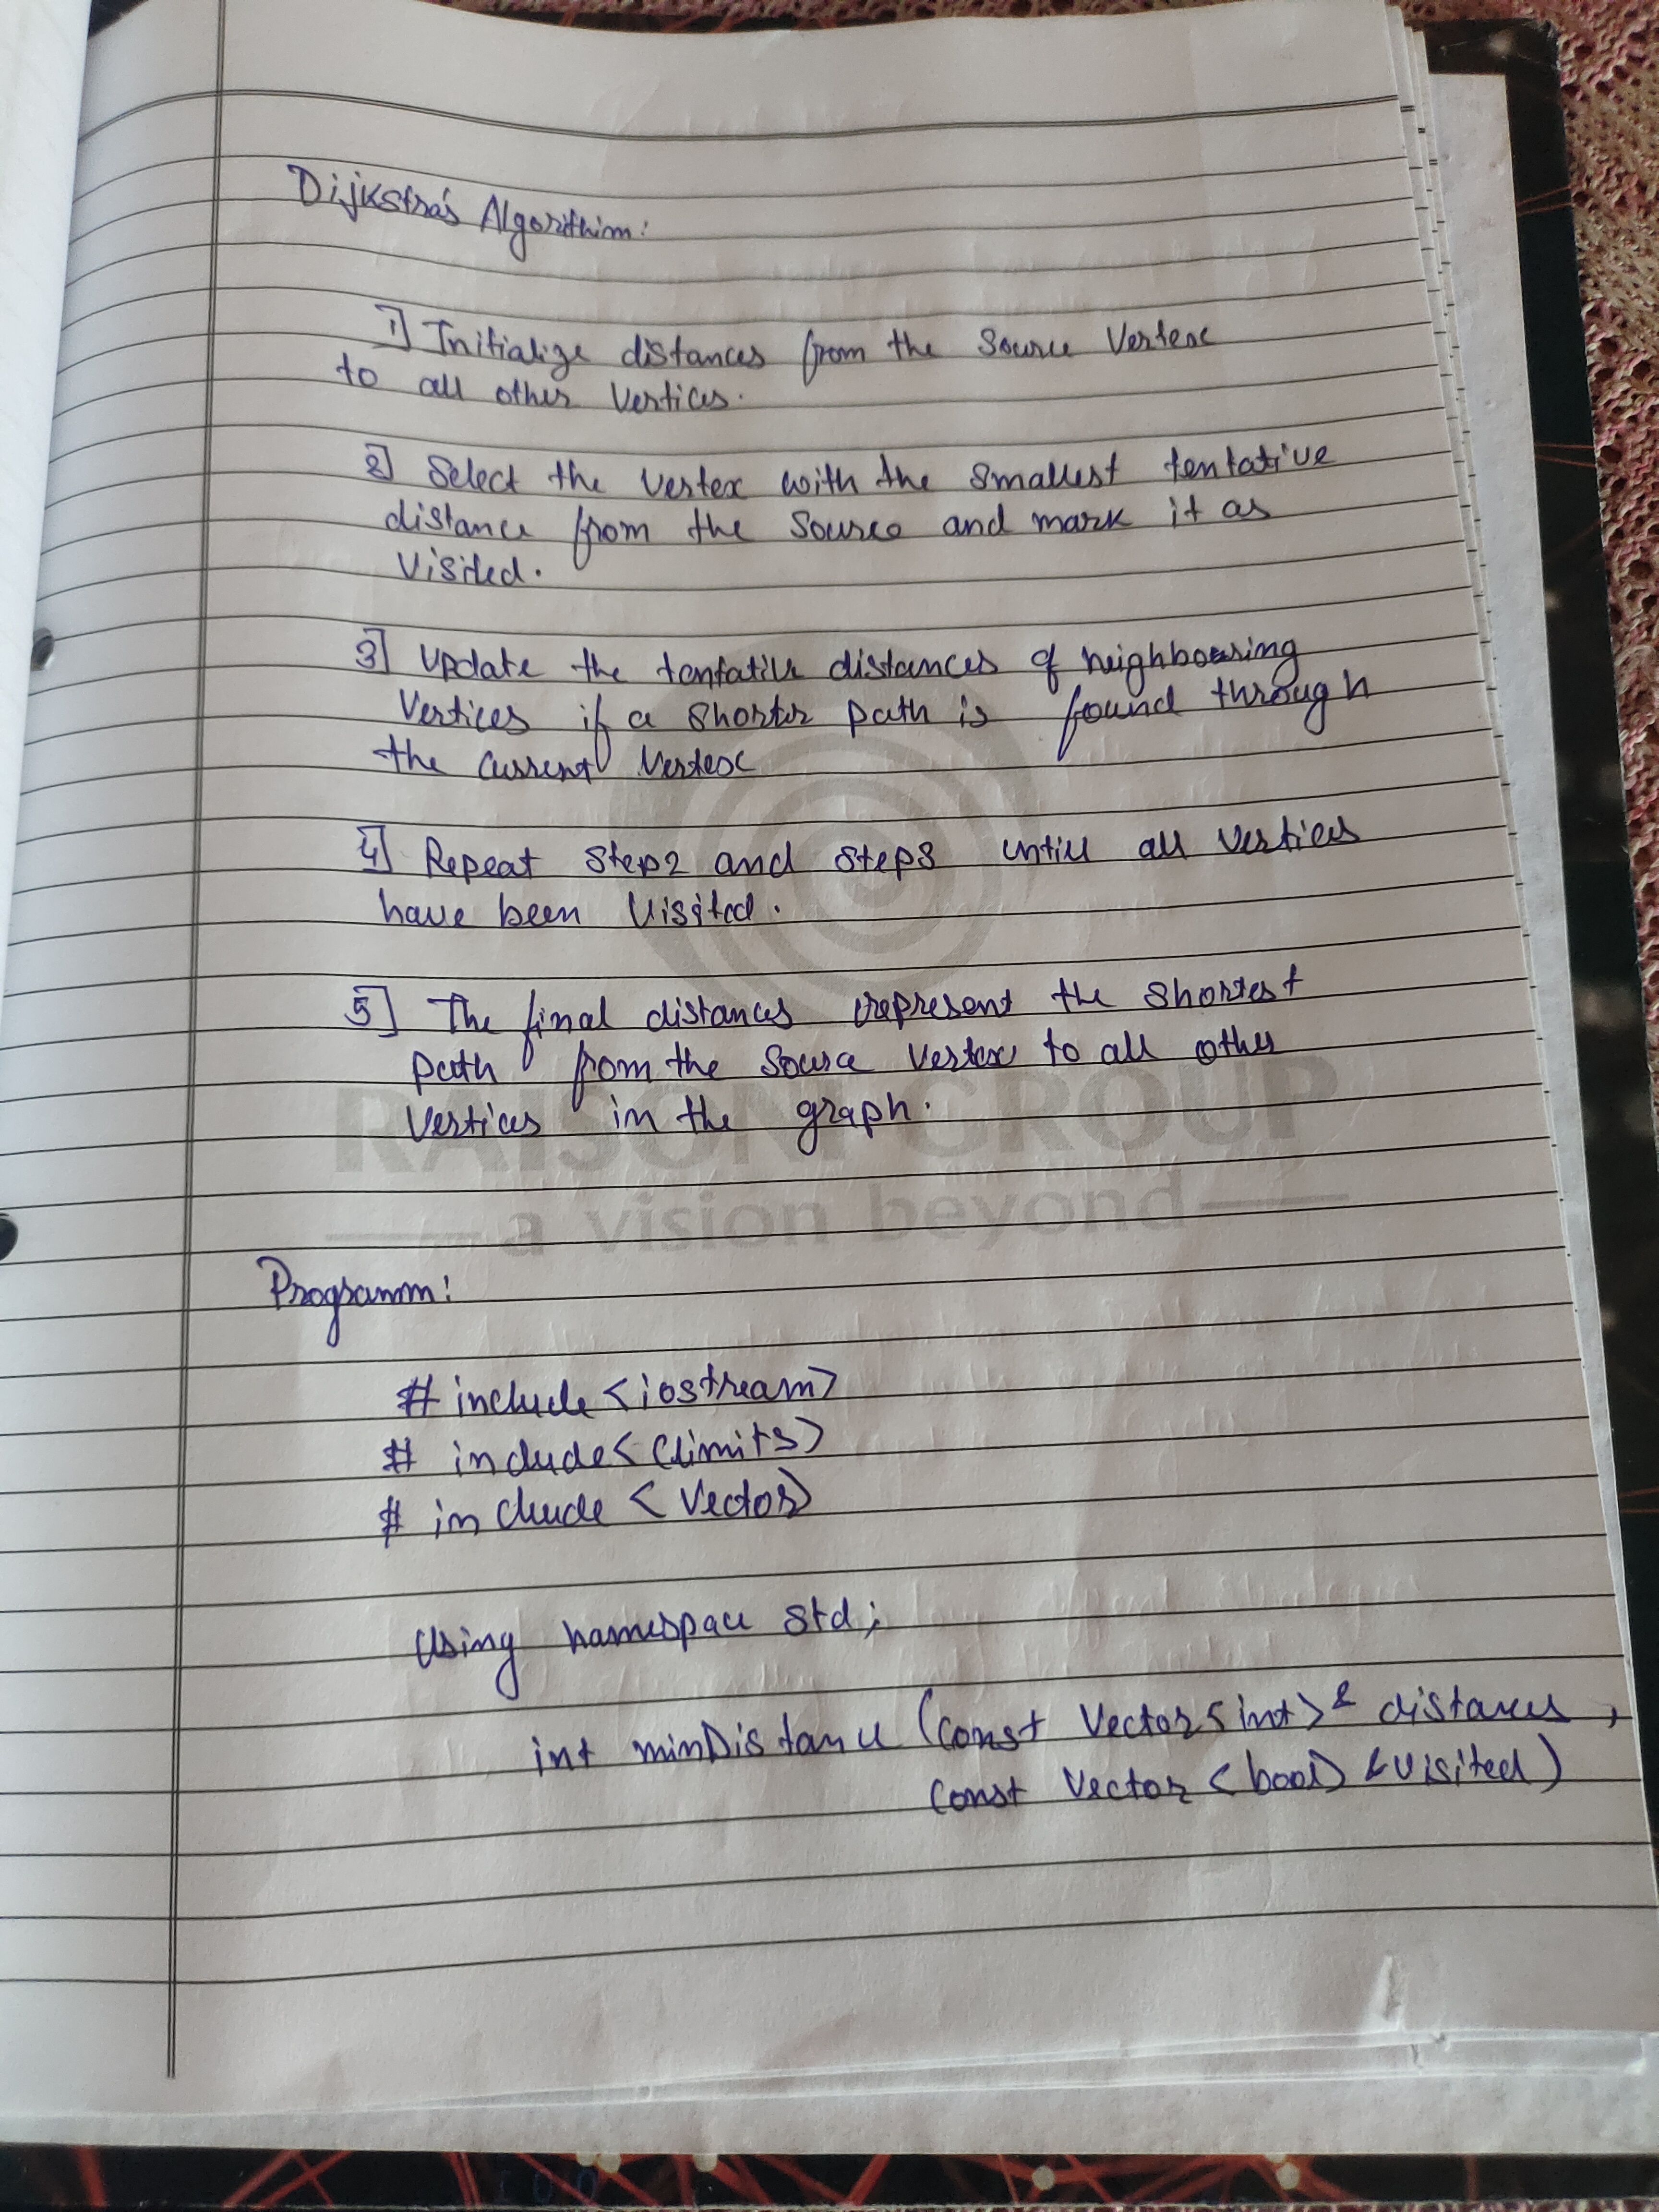 Dijkstra's Algorithim:
1] Initialize distances from the Source Vertex
to all other Vertices.
2] Select the vertex with the smallest tentative
distance from the source and mark it as
Visited.
3] Update the tentative distances of neighbouring
Vertices if a shorter path is found through
the current vertex
4] Repeat step2 and step3 untill all vertices
have been visited.
5] The final distances represent the shortest
path from the source vertex to all other
vertices in the graph.
RAISONI GROUP
a vision beyond
Programm:
# include <iostream>
# include <climits>
# include <vector>
using namespace std;
int minDistance (const vector<int>& distances,
const vector <bool> &visited)